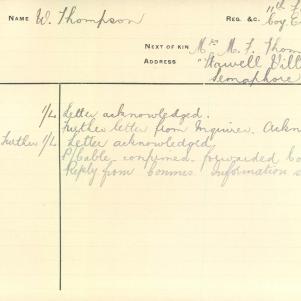 NAME W. Thompson
REG. &C. 11th F
Coy E
NEXT OF KIN Mrs M. F. Thom
ADDRESS "Hawell Vill
Semaphore
1/L Letter acknowledged.
Further letter from Inquirer. Ackn
Further 1/L Letter acknowledged
P/Cable confirmed. forwarded Co
Reply from Commis. Information s